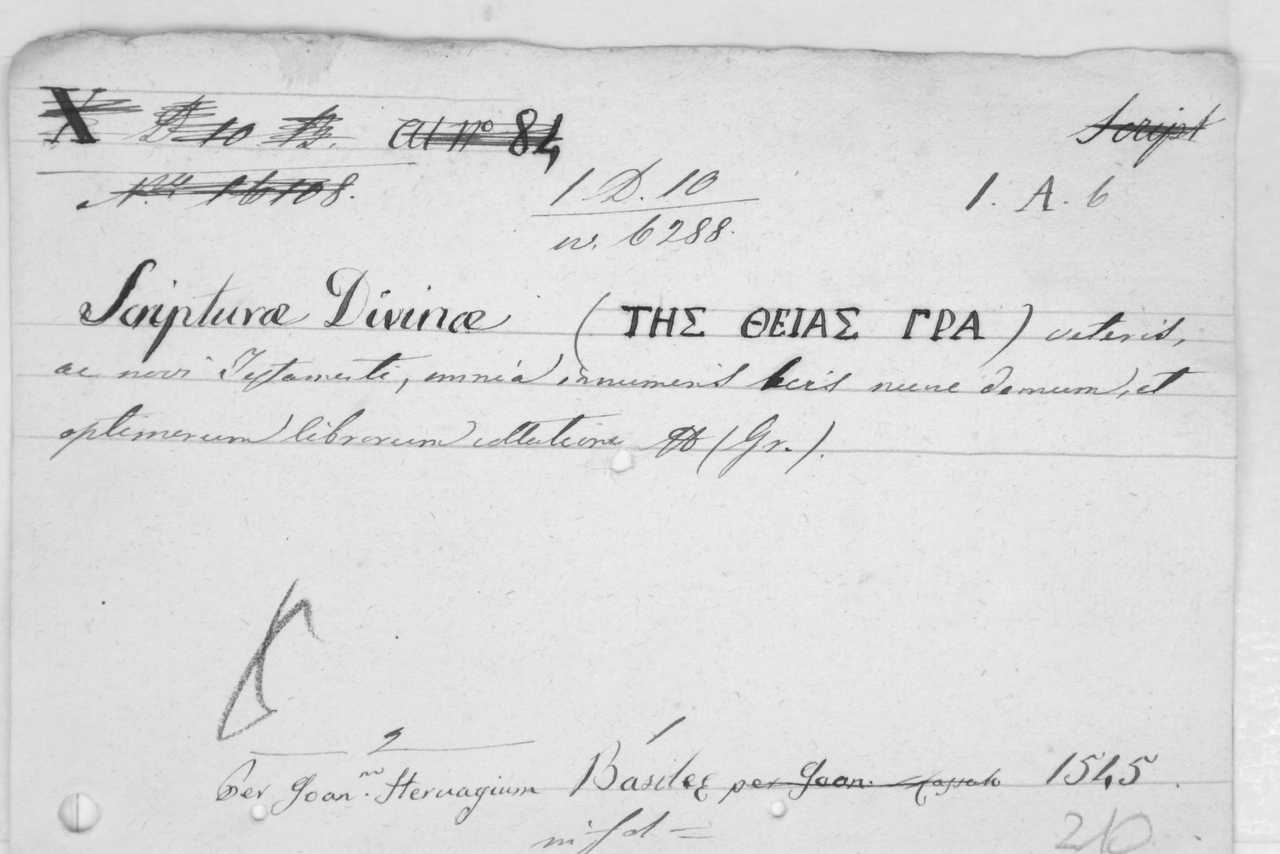 X D 10 B. al nº 84 Script
N.º 16108. 1 D. 10 1. A. 6
n. 6288.
Scripturæ Divinæ (ΤΗΣ ΘΕΙΑΣ ΓΡΑ) veteris,
ac novi Testamenti, omnia innumeris locis nunc demum, et
optimorum librorum collatione (Gr.).
2 1
Per Joan.m Hervagium Basileæ per Joan. 1545.
in fol =
210